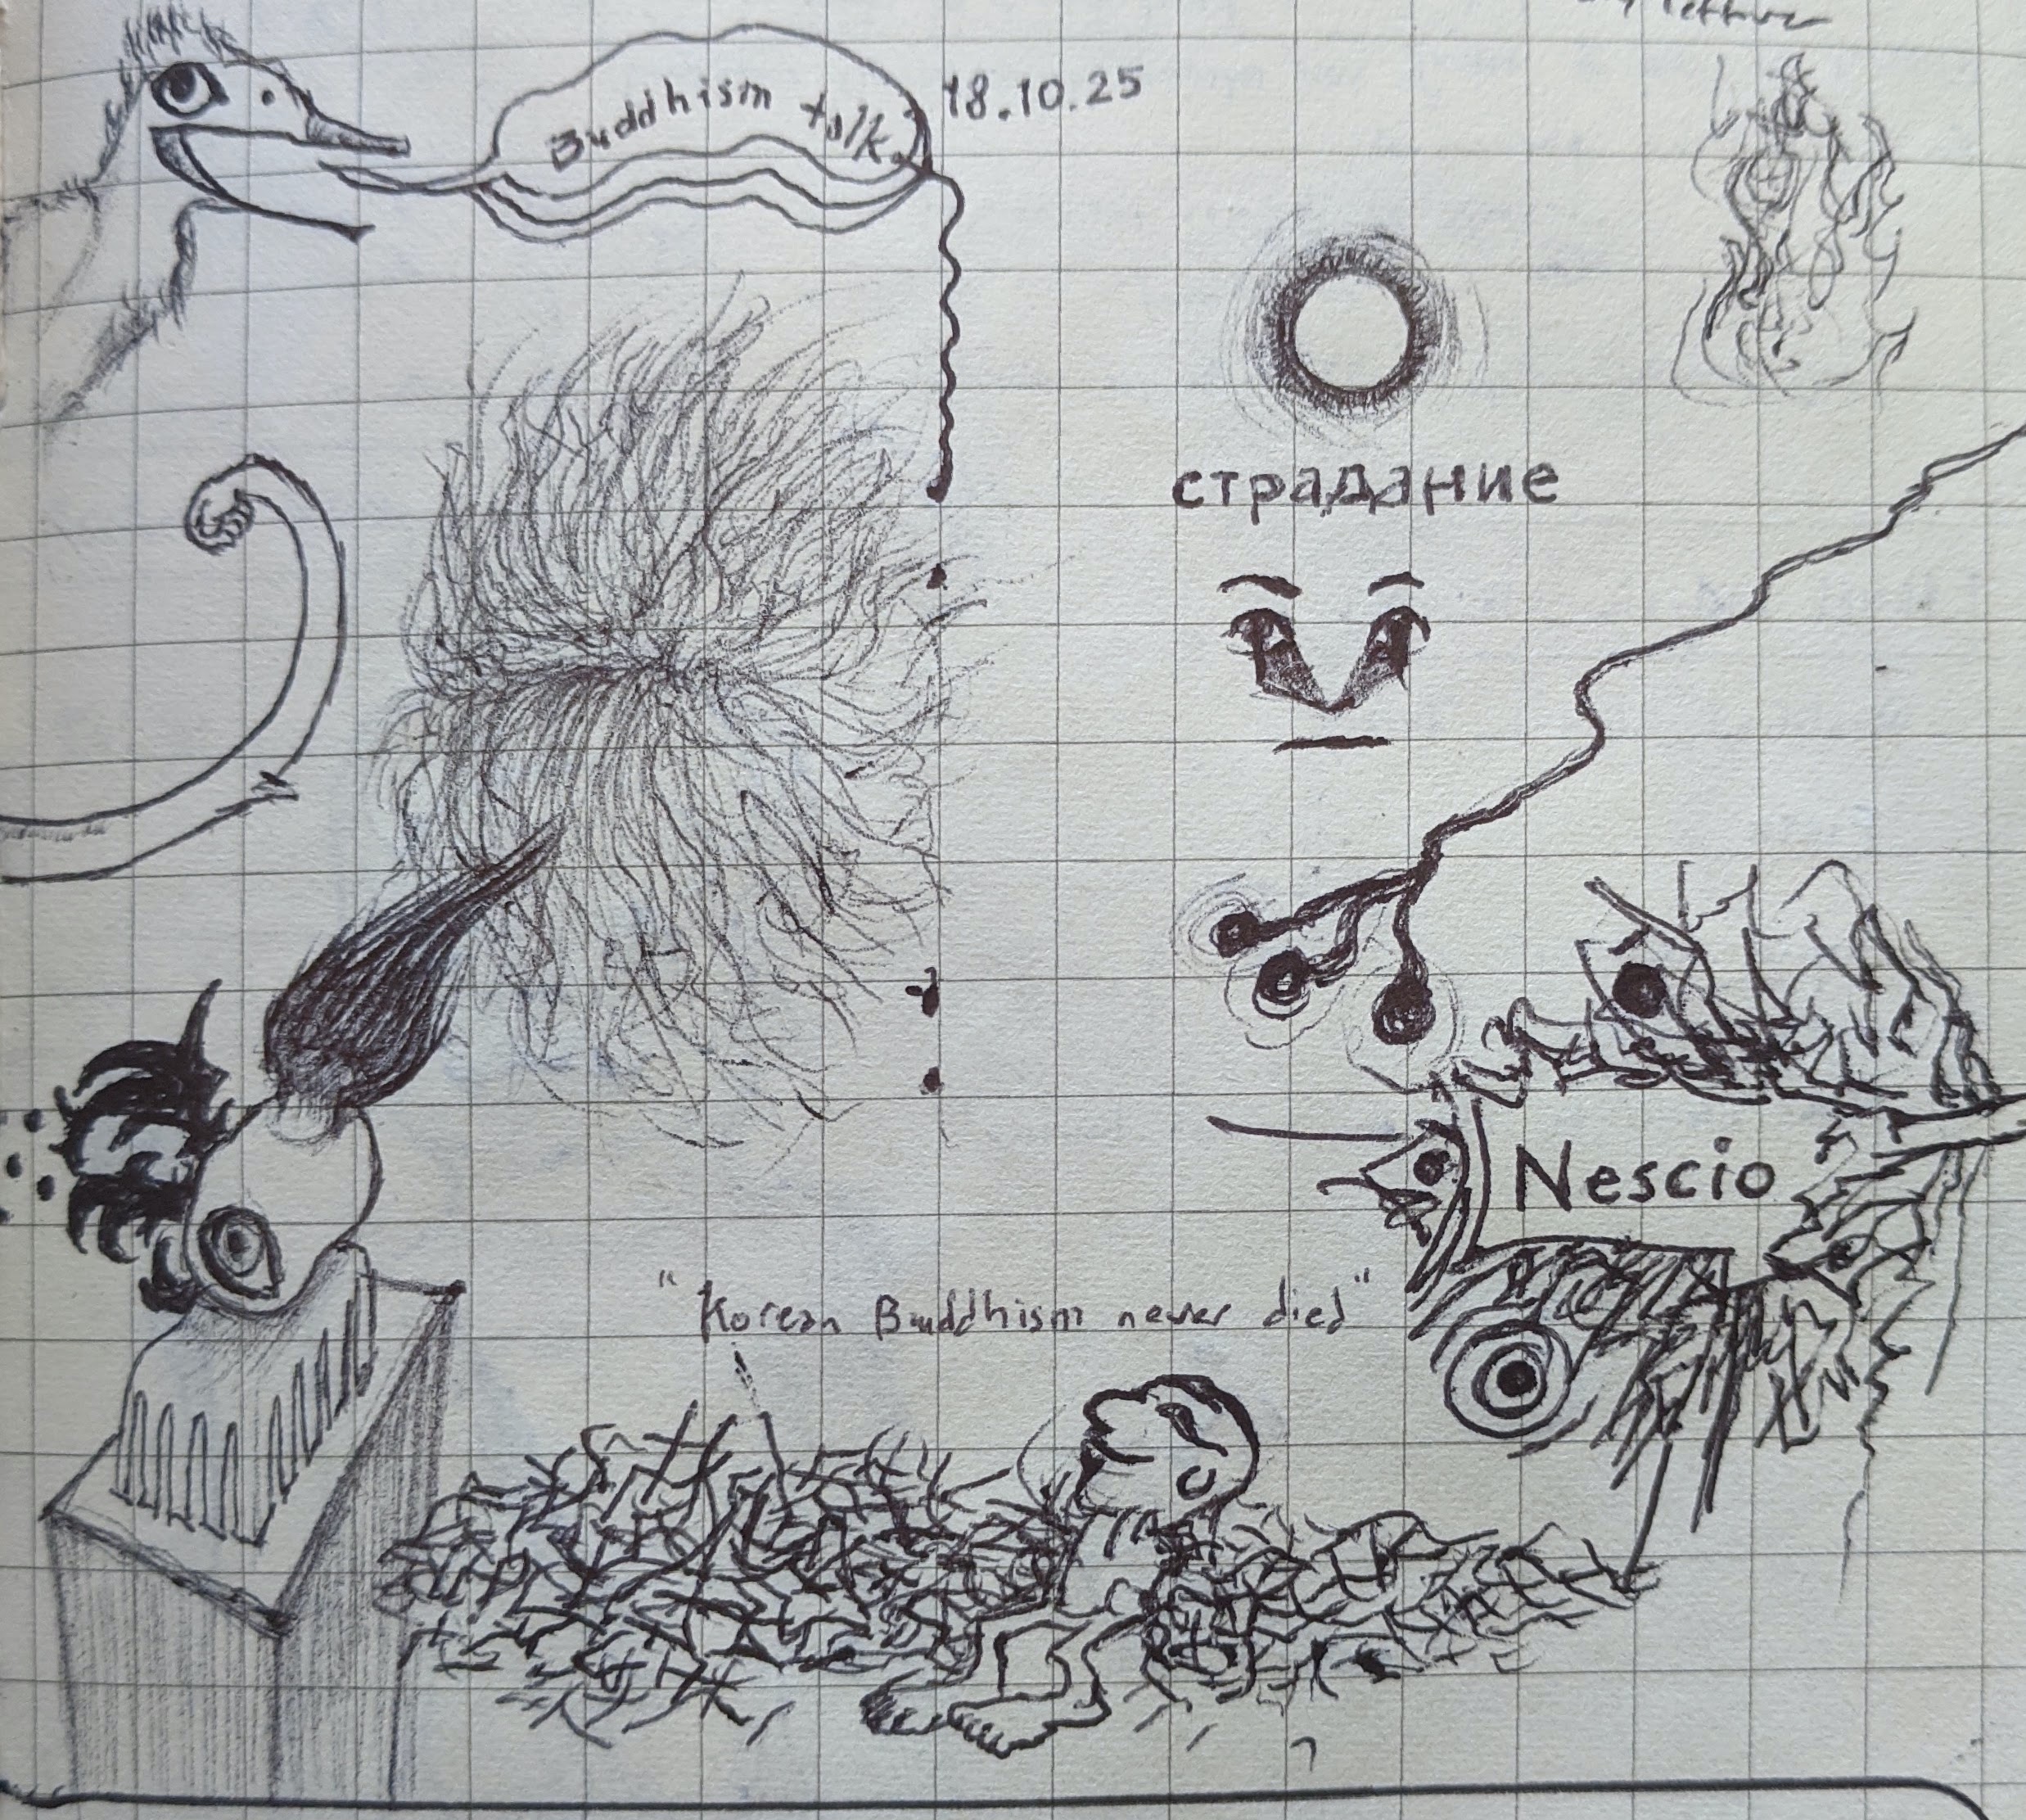 Buddhism talk
18.10.25
страдание
Nescio
"Korean Buddhism never died"